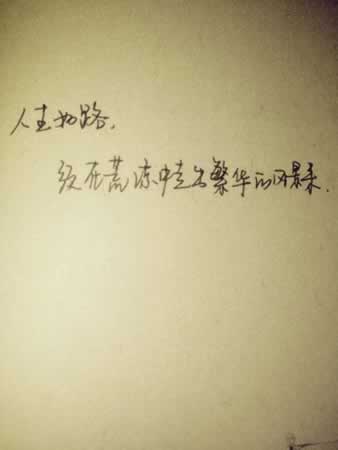 人生如路.
须在荒凉中走出繁华的风景来.